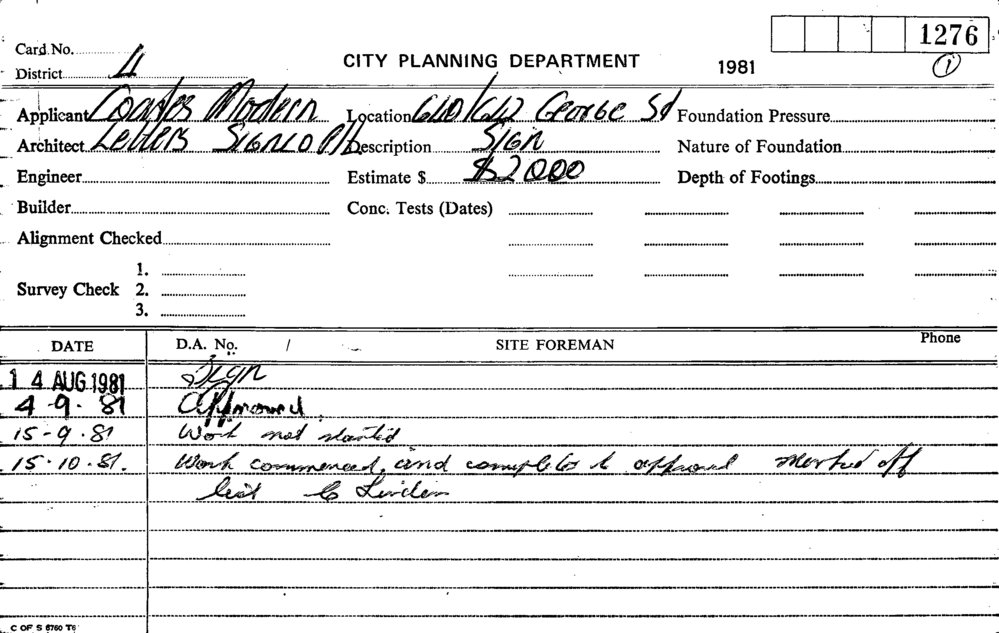 1276
Card No.
CITY PLANNING DEPARTMENT
1981
1
District 4
Applicant Coates Modern
Location 640/642 George St
Foundation Pressure
Architect Letters Signco P/L
Description Sign
Nature of Foundation
Engineer
Estimate $ $2000
Depth of Footings
Builder
Conc. Tests (Dates)
Alignment Checked
Survey Check 1.
2.
3.
DATE D.A. No. / SITE FOREMAN Phone
14 AUG 1981 Sign
4-9-81 Approved.
15-9-81 Work not started
15-10-81. Work commenced, and completed to approval Marked off
list
C OF S 8760 T6